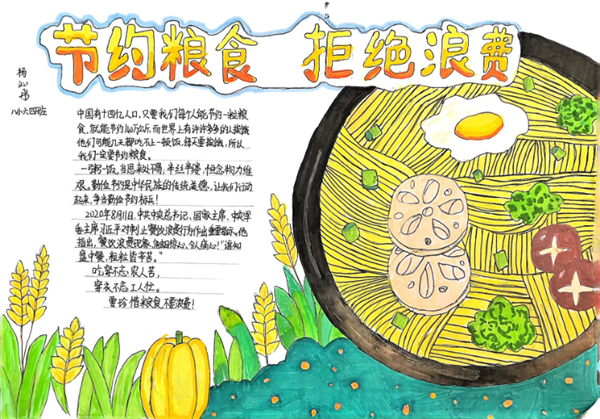 节约粮食 拒绝浪费
八小六四班
中国有十四亿人口,只要我们每个人能节约一粒粮
食,就能节约 而世界上有许许多多的人挨饿
他们可能几天都吃不上一顿饭,每天要挨饿,所以
我们一定要节约粮食。
一粥一饭,当思来处不易,半丝半缕,恒念物力维
艰。勤俭节约是中华民族的传统美德,让我们行动
起来,争当勤俭节约标兵!
2020年8月11日,中共中央总书记、国家主席、中央军
委主席习近平对制止餐饮浪费行为作出重要指示。他
指出,餐饮浪费现象,触目惊心、令人痛心!"谁知
盘中餐,粒粒皆辛苦。"
吃穿不忘农人苦,
穿衣不忘工人忙。
要珍惜粮食,不要浪费!